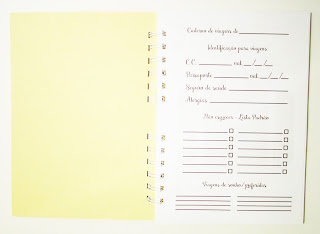 Caderno de viagem de
Identificação para viagem
C.C. val. / /
Passaporte val. / /
Seguro de saúde
Alergias
Não esquecer - Lista Padrão
Viagens de sonho/preferidas